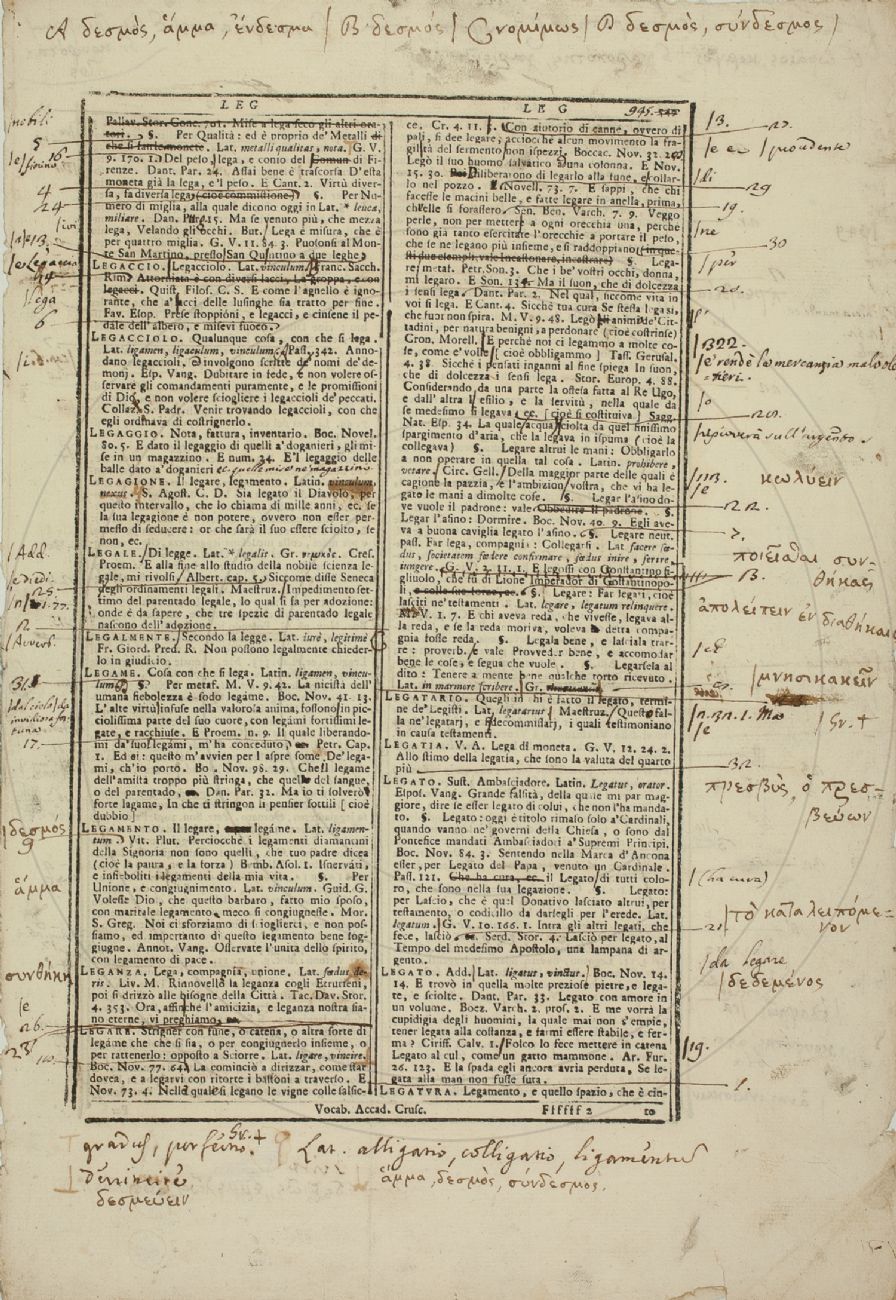 A δεσμὸς, ἅμμα, ἔνδεσμα / B δεσμός / C νομίμως / D δεσμὸς, σύνδεσμος /
LEG
LEG
Pallav. Stor. Conc. 701. Mise a lega seco gli altri ora-
tori. §. Per Qualità: ed è proprio de' Metalli di
che si fa le monete. Lat. metalli qualitas, nota. G. V.
9. 170. 1. Del pelo, lega, e conio del Comun di Fi-
renze. Dant. Par. 24. Assai bene è trascorsa D'esta
moneta già la lega, e 'l peso. E Cant. 2. Virtù diver-
sa, fa diversa lega (cioè commissione) §. Per Nu-
mero di miglia, alla quale dicono oggi in Lat. * leuca,
miliare. Dan. Purg. 15. Ma se venuto più, che mezza
lega, Velando gli occhi. But. Lega è misura, che è
per quattro miglia. G. V. 11. 84. 3. Puosonsi al Mon-
te San Martino, presso San Quintino a due leghe
LEGACCIO. Legacciolo. Lat. vinculum. Franc. Sacch.
Rim. Attorniata è con diversi lacci, La groppa, e con
legacci. Quist. Filosf. C. S. E come l'agnello è igno-
rante, che a' lacci delle lusinghe sia tratto per fine.
Fav. Esop. Prese stoppioni, e legacci, e cinsene il pe-
dale dell'albero, e misevi fuoco.
LEGACCIOLO. Qualunque cosa, con che si lega.
Lat. ligamen, ligaculum, vinculum. Pass. 342. Anno-
dano legaccioli, e involgono scritte de' nomi de' de-
monj. Esp. Vang. Dubitare in fede, e non volere os-
servare gli comandamenti puramente, e le promissioni
di Dio, e non volere sciogliere i legaccioli de' peccati.
Collaz. S. Padr. Venir trovando legaccioli, con che
egli ordinava di costrignerlo.
LEGAGGIO. Nota, fattura, inventario. Boc. Novel.
80. 5. E dato il legaggio di quelli a' doganieri, gli mi-
se in un magazzino. E num. 24. E 'l legaggio delle
balle dato a' doganieri
LEGAGIONE. Il legare, legamento. Latin. vinculum,
nexus. S. Agost. C. D. Sia legato il Diavolo, per
questo intervallo, che lo chiama di mille anni, ec. se
la sua legagione è non potere, ovvero non esser per-
messo di seducere: or che sarà il suo essere sciolto, se
non, ec.
LEGALE. Di legge. Lat. * legalis. Gr. νομικός. Cres.
Proem. E alla fine allo studio della nobile scienza le-
gale, mi rivolsi. Albert. cap. 5. Siccome disse Seneca
degli ordinamenti legali. Maestruz. Impedimento set-
timo del parentado legale, lo qual si fa per adozione:
onde è da sapere, che tre spezie di parentado legale
nascono dell'adozione.
LEGALMENTE. Secondo la legge. Lat. iurè, legitimè
Fr. Giord. Pred. R. Non possono legalmente chieder-
lo in giudicio.
LEGAME. Cosa con che si lega. Latin. ligamen, vincu-
lum. §. Per metaf. M. V. 9. 42. La nicistà dell'
umana fiebolezza è sodo legáme. Boc. Nov. 41. 13.
L'alte virtù infuse nella valorosa anima, fossono in pic-
ciolissima parte del suo cuore, con legámi fortissimi le-
gate, e racchiuse. E Proem. n. 9. Il quale liberando-
mi da' suoi legámi, m'ha conceduto. Petr. Cap.
1. Ed ei: questo m'avvien per l'aspre some De' lega-
mi, ch'io porto. Bo. Nov. 98. 29. Che il legame
dell'amistà troppo più stringa, che quel del sangue,
o del parentado. Dan. Par. 32. Ma io ti solverò
forte lagame, In che ti stringon li pensier sottili [cioè
dubbio]
LEGAMENTO. Il legare, legáme. Lat. ligamen-
tum. Vit. Plut. Perciocchè i legamenti diamantini
della Signoria non sono quelli, che tuo padre dicea
(cioè la paura, e la forza) Bemb. Asol. 1. Isnervati,
e infieboliti i legamenti della mia vita. §. Per
Unione, e congiugnimento. Lat. vinculum. Guid. G.
Volesse Dio, che questo barbaro, fatto mio sposo,
con maritale legamento, meco si congiugnesse. Mor.
S. Greg. Noi ci sforziamo di scioglierci, e non pos-
siamo, ed imperranto di questo legamento bene sog-
giugne. Annot. Vang. Osservate l'unità dello spirito,
con legamento di pace.
LEGANZA. Lega, compagnia, unione. Lat. fœdus.
Liv. M. Riannovellò la leganza cogli Etrusteni,
poi si drizzò alle bisogne della Città. Tac. Dav. Stor.
4. 353. Ora, affinchè l'amicizia, e leganza nostra sia-
no eterne, vi preghiamo,
LEGARE. Strigner con fune, o catena, o altra sorte di
legáme che che si sia, o per congiugnerlo insieme, o
per rattenerlo: opposto a Sciorre. Lat. ligare, vincire.
Boc. Nov. 77. 64. La cominciò a dirizzar, come star
dovea, e a legarvi con ritorte i bastoni a traverso. E
Nov. 73. 4. Nella quale si legano le vigne colle salsic-
ce. Cr. 4. 11. Con aiutorio di canne, ovvero di
pali, si dee legare, acciocchè alcun movimento la fra-
gilità del sermento non ispezzi. Boccac. Nov. 32.
Legò il suo huomo salvatico a una colonna. E Nov.
15. 30. Diliberarono di legarlo alla fune, e collar-
lo nel pozzo. Novell. 73. 7. E sappi, che chi
facesse le macini belle, e fatte legare in anella, prima,
ch'elle si forassero. Sen. Ben. Varch. 7. 9. Veggo
perle, non per mettere a ogni orecchia una, perchè
sono già tanto esercitate l'orecchie a portare il peso,
che se ne legano più insieme, e si raddoppiano (in que-
sti due esempli vale Incastonare, incastrare) §. Lega-
re: metaf. Petr. Son. 3. Che i be' vostri occhi, donna,
mi legaro. E Son. 134. Ma il suon, che di dolcezza
i sensi lega. Dant. Par. 2. Nel qual, siccome vita in
voi si lega. E Cant. 4. Sicchè tua cura Se stessa lega sì,
che fuor non spira. M. V. 9. 48. Legò li animi de' Cit-
tadini, per natura benigni, a perdonare (cioè costrinse)
Cron. Morell. E perchè noi ci legammo a molte co-
se, come e' volle [cioè obbligammo] Tass. Gerusal.
4. 38. Sicchè i pensati inganni al fine spiega In suon,
che di dolcezza i sensi lega. Stor. Europ. 4. 88.
Considerando, da una parte la offesa fatta al Re Ugo,
e dall'altra l'esilio, e la servitù, nella quale da
se medesimo si legava ec. [cioè si costituiva] Sagg.
Nat. Esp. 34. La quale acqua sciolta da quel finissimo
spargimento d'aria, che la legava in ispuma (cioè la
collegava) §. Legare altrui le mani: Obbligarlo
a non operare in quella tal cosa. Latin. prohibere,
vetare. Circ. Gell. Della maggior parte delle quali è
cagione la pazzia, e l'ambizion vostra, che vi ha le-
gato le mani a dimolte cose. §. Legar l'asino do-
ve vuole il padrone: vale Obbedire il padrone. §.
Legar l'asino: Dormire. Boc. Nov. 40. 9. Egli ave-
va a buona caviglia legato l'asino. §. Legare neut.
pass. Far lega, compagnia: Collegarsi. Lat. facere fœ-
dus, societatem fœdere confirmare, fœdus inire, ferire,
iungere. G. V. 2. 11. 1. E legossi con Gostantino fi-
gliuolo, che fu di Lione Imperador di Gostantinopo-
li, e colle sue forze, ec. §. Legare: Far legati, cioè
lasciti ne' testamenti. Lat. legare, legatum relinquere.
M. V. 1. 7. E chi aveva reda, che vivesse, legava al-
la reda, e se la reda moriva, voleva la detta compa-
gnia fosse reda. §. Legala bene, e lasciala trar-
re: proverb. e vale Provveder bene, e accomodar
bene le cose, e segua che vuole. §. Legarsela al
dito: Tenere a mente bene qualche torto ricevuto.
Lat. in marmore scribere. Gr.
LEGATARIO. Quegli in chi è fatto il legato, termi-
ne de' Legisti. Lat. legatarius. Maestruz. Questo fal-
la ne' legatarj, e fidecommissarj, i quali testimoniano
in causa testamenti.
LEGATIA. V. A. Lega di moneta. G. V. 12. 24. 2.
Allo stimo della legatia, che sono la valuta del quarto
più
LEGATO. Sust. Ambasciadore. Latin. Legatus, orator.
Espos. Vang. Grande falsità, della quale mi par mag-
giore, dire se esser legato di colui, che non l'ha manda-
to. §. Legato: oggi è titolo rimaso solo a' Cardinali,
quando vanno ne' governi della Chiesa, o sono dal
Pontefice mandati Ambasciadori a Supremi Principi.
Boc. Nov. 84. 3. Sentendo nella Marca d'Ancona
esser, per Legato del Papa, venuto un Cardinale.
Pass. 121. Che ha cura, ec. il Legato di tutti colo-
ro, che sono nella sua legazione. §. Legato:
per Lascio, che è quel Donativo lasciato altrui, per
testamento, o codicillo da darsegli per l'erede. Lat.
legatum. G. V. 10. 166. 1. Intra gli altri legati, che
fece, lasciò. Serd. Stor. 4. Lasciò per legato, al
Tempo del medesimo Apostolo, una lampana di ar-
gento.
LEGATO. Add. Lat. ligatus, vinctus. Boc. Nov. 14.
14. E trovò in quella molte preziose pietre, e lega-
te, e sciolte. Dant. Par. 33. Legato con amore in
un volume. Boez. Varch. 2. pros. 2. E me vorrà la
cupidigia degli huomini, la quale mai non s'empie,
tener legata alla costanza, e farmi essere stabile, e fer-
ma? Ciriff. Calv. 1. Folco lo fece mettere in catena
Legato al cul, come un gatto mammone. Ar. Fur.
26. 123. E la spada egli ancora avria perduta, Se le-
gata alla man non fusse suta.
LEGATURA. Legamento, e quello spazio, che è cin-
Vocab. Accad. Crusc.
Ffffff 2
to
nobili
5
16
4
24
13
6
Add.
25
12
Avverb.
31
17.
δεσμός
9
ἅμμα
συνθήκη
26.
23
13.
29
19.
30
20.
1322.
κωλύειν
22.
ποιεῖσθαι συν-
θήκας
B.
ἀπολείπειν ἐν διαθήκαις
μνησικακεῖν
Gr. +
32.
πρεσβὺς, ὁ πρεσ-
βεύων
(ha cura)
τὸ καταλειπόμε-
νον
da legare
δεδεμένος
19.
1.
Gr. +
Lat. alligatio, colligatio, ligamentum
ἅμμα, δεσμὸς, σύνδεσμος.
devincire
δεσμεύειν